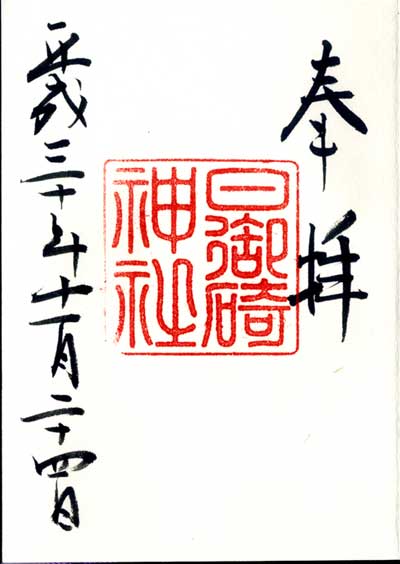 奉拝
日御碕
神社
平成三十年十一月二十四日